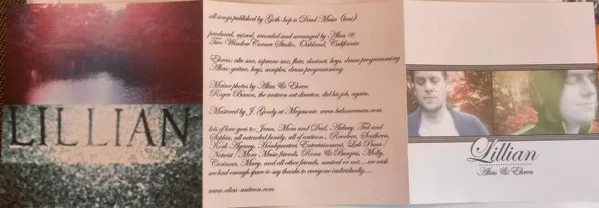 LILLIAN
all songs published by Goth-hop is Dead Music (bmi)
produced, mixed, recorded and arranged by Alias @
Two Window Corner Studio, Oakland, California
Ehren: alto sax, soprano sax, flute, clarinet, keys, drum programming
Alias: guitar, keys, samples, drum programming
Maine photos by Alias & Ehren
the anticon art director, did his job, again.
Mastered by J. Goody at Megasonic
lots of love goes to: Jenn, Mom and Dad, Aubrey, Ted and
Sophia, all extended family, all of anticon, Revolver, Southern,
Kork Agency, Headquarters Entertainment, Lali Puna /
Notwist / Morr Music friends, Rona & Burgess, Molly,
Corinna, Marty, and all other friends, musical or not....we wish
we had enough space to say thanks to everyone individually....
www.alias-anticon.com
Lillian
Alias & Ehren